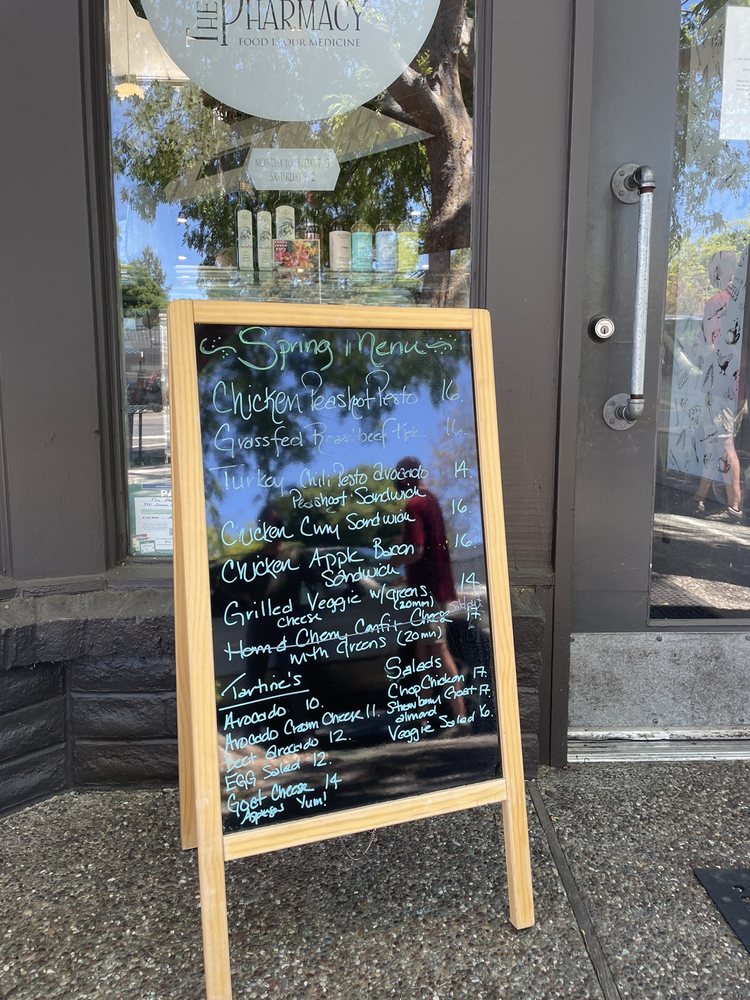 THE PHARMACY
FOOD IS OUR MEDICINE
MONDAY TO FRIDAY
SATURDAY 9-2
Spring Menu
Chicken Peashoot Pesto 16.
Grassfed Roastbeef 16.
Turkey Chili Pesto avocado 14.
Peashoot Sandwich
Chicken Curry Sandwich 16.
Chicken Apple Bacon 16.
Sandwich
Grilled Veggie w/greens 14
cheese (20min)
Ham & Cherry Confit Cheese 17.
with Greens (20min)
Tartine's
Avocado 10.
Avocado Cream Cheese 11.
Beet Avocado 12.
EGG Salad 12.
Goat Cheese 14
Aspergus Yum!
Salads
Chop Chicken 17.
Strawberry Goat 17.
almond
Veggie Salad 16.